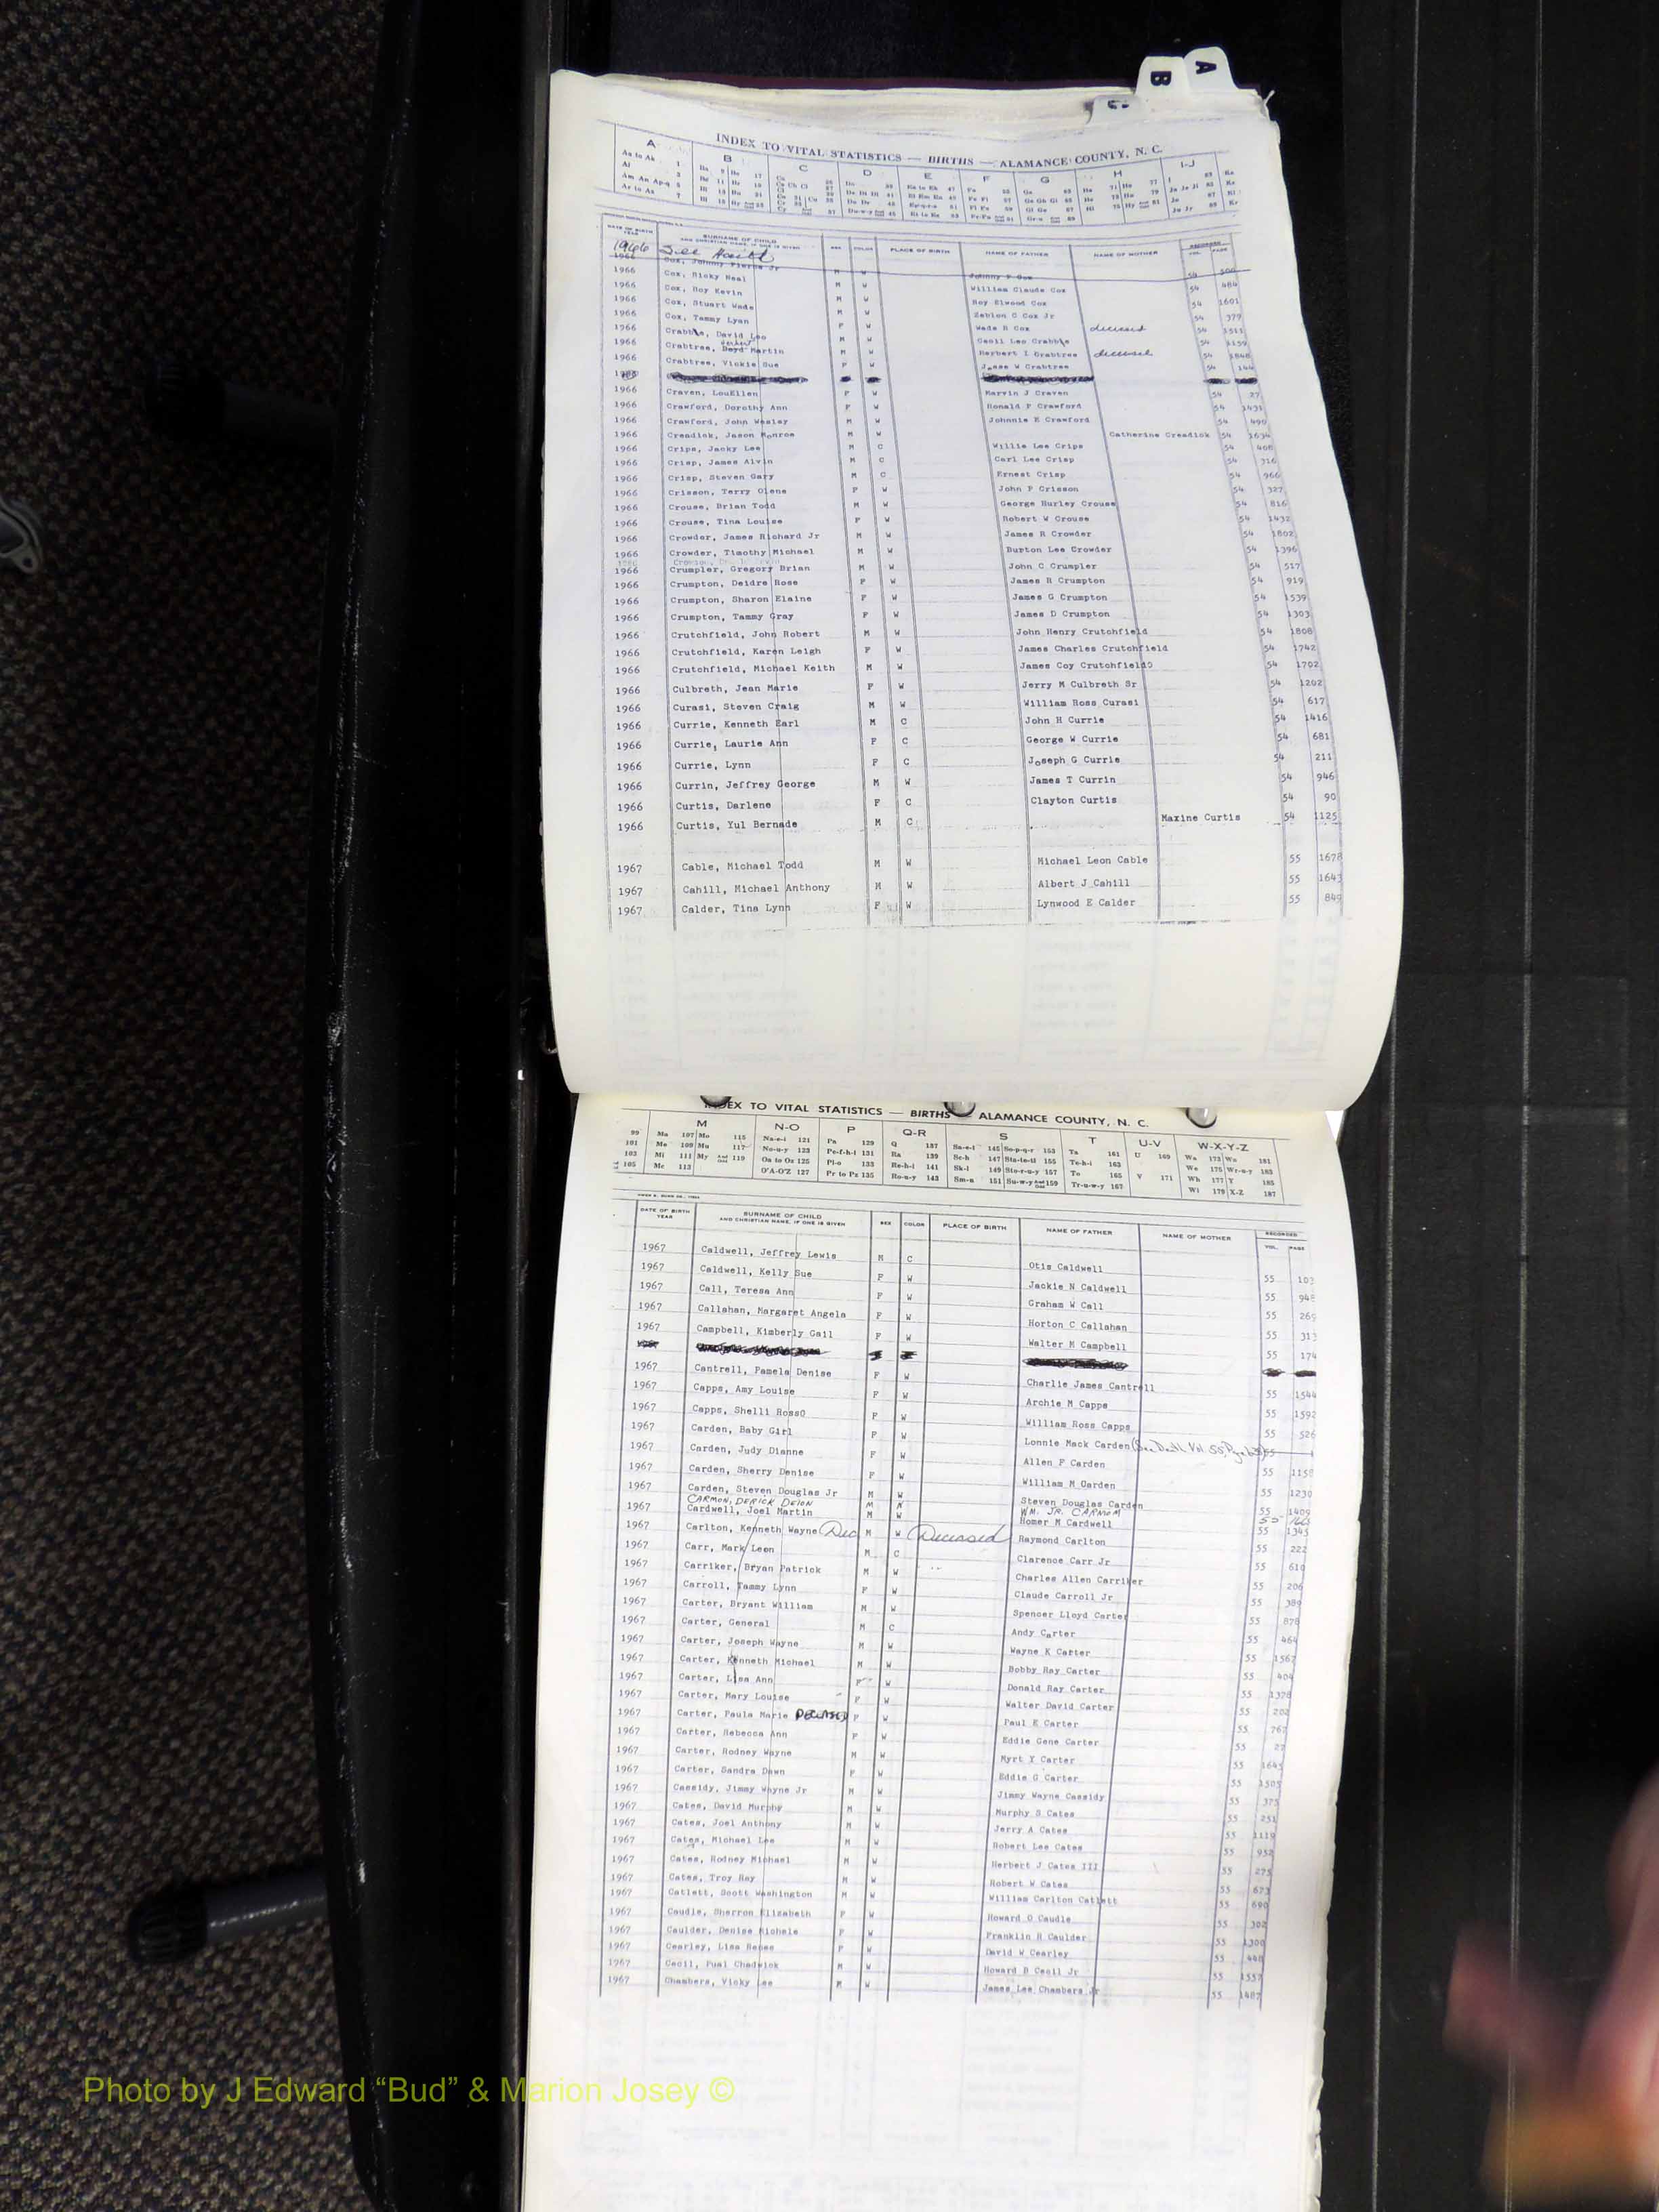 A
B
INDEX TO VITAL STATISTICS — BIRTHS — ALAMANCE COUNTY, N. C.
A B C D E F G H I-J
DATE OF BIRTH YEAR SURNAME OF CHILD AND CHRISTIAN NAME, IF ONE IS GIVEN SEX COLOR PLACE OF BIRTH NAME OF FATHER NAME OF MOTHER RECORDED VOL. PAGE
1966
1966 Cox, Johnny Pierce Jr M W 54
1966 Cox, Ricky Neal M W William Claude Cox 54 484
1966 Cox, Roy Kevin M W Roy Elwood Cox 54 1601
1966 Cox, Stuart Wade M W Zeblon C Cox Jr 54 379
1966 Cox, Tammy Lynn F W Wade B Cox deceased 54
1966 Crabble, David Leo M W Cecil Leo Crabble 54 1159
1966 Crabtree, Boyd Martin M W Herbert I Crabtree deceased 54 1848
1966 Crabtree, Vickie Sue F W Jesse W Crabtree 54 144
1966 Craven, LouEllen F W Marvin J Craven 54 27
1966 Crawford, Dorothy Ann F W Ronald F Crawford 54 1431
1966 Crawford, John Wesley M W Johnnie E Crawford 54 490
1966 Creadick, Jason Monroe M W Catherine Creadick 54 1634
1966 Crips, Jacky Lee M C Willie Lee Crips 54 408
1966 Crisp, James Alvin M C Carl Lee Crisp 54 316
1966 Crisp, Steven Gary M C Ernest Crisp 54 966
1966 Crisson, Terry Olene F W John P Crisson 54 327
1966 Crouse, Brian Todd M W George Hurley Crouse 54 816
1966 Crouse, Tina Louise F W Robert W Crouse 54 1432
1966 Crowder, James Richard Jr M W James R Crowder 54 1802
1966 Crowder, Timothy Michael M W Burton Lee Crowder 54 1396
1966 Crumpler, Gregory Brian M W John C Crumpler 54 517
1966 Crumpton, Deidre Rose F W James R Crumpton 54 919
1966 Crumpton, Sharon Elaine F W James G Crumpton 54 1539
1966 Crumpton, Tammy Gray F W James D Crumpton 54 1303
1966 Crutchfield, John Robert M W John Henry Crutchfield 54 1808
1966 Crutchfield, Karen Leigh F W James Charles Crutchfield 54 1742
1966 Crutchfield, Michael Keith M W James Coy Crutchfield0 54 1702
1966 Culbreth, Jean Marie F W Jerry M Culbreth Sr 54 1202
1966 Curasi, Steven Craig M W William Ross Curasi 54 617
1966 Currie, Kenneth Earl M C John H Currie 54 1416
1966 Currie, Laurie Ann F C George W Currie 54 681
1966 Currie, Lynn F C Joseph G Currie 54 211
1966 Currin, Jeffrey George M W James T Currin 54 946
1966 Curtis, Darlene F C Clayton Curtis 54 90
1966 Curtis, Yul Bernade M C Maxine Curtis 54 1125
1967 Cable, Michael Todd M W Michael Leon Cable 55 1678
1967 Cahill, Michael Anthony M W Albert J Cahill 55 1643
1967 Calder, Tina Lynn F W Lynwood E Calder 55 849
INDEX TO VITAL STATISTICS — BIRTHS — ALAMANCE COUNTY, N. C.
M N-O P Q-R S T U-V W-X-Y-Z
99 Ma 107 Mo 115 Na-e-i 121 Pa 129 Q 137 Sa-e-i 145 So-p-q-r 153 Ta 161 U 169 Wa 173 Wo 181
101 Me 109 Mu 117 No-u-y 123 Pe-f-h-l 131 Ra 139 Sc-h 147 Sta-te-ti 155 Te-h-i 163 We 175 Wr-u-y 183
103 Mi 111 My 119 Oa to Oz 125 Pl-o 133 Re-h-i 141 Sk-l 149 Sto-r-u-y 157 To 165 V 171 Wh 177 Y 185
105 Mc 113 O'A-O'Z 127 Pr to Pz 135 Ro-u-y 143 Sm-n 151 Su-w-y 159 Tr-u-w-y 167 Wi 179 X-Z 187
DATE OF BIRTH YEAR SURNAME OF CHILD AND CHRISTIAN NAME, IF ONE IS GIVEN SEX COLOR PLACE OF BIRTH NAME OF FATHER NAME OF MOTHER RECORDED VOL. PAGE
1967 Caldwell, Jeffrey Lewis M C Otis Caldwell 55 103
1967 Caldwell, Kelly Sue F W Jackie N Caldwell 55 948
1967 Call, Teresa Ann F W Graham W Call 55 265
1967 Callahan, Margaret Angela F W Horton C Callahan 55 313
1967 Campbell, Kimberly Gail F W Walter M Campbell 55 174
1967 Cantrell, Pamela Denise F W Charlie James Cantrell 55 1544
1967 Capps, Amy Louise F W Archie M Capps 55 1592
1967 Capps, Shelli Ross0 F W William Ross Capps 55 526
1967 Carden, Baby Girl F W Lonnie Mack Carden (See Death Vol 55, Page 63) 55
1967 Carden, Judy Dianne F W Allen F Carden 55 1158
1967 Carden, Sherry Denise F W William M Carden 55 1230
1967 Carden, Steven Douglas Jr M W Steven Douglas Carden 55 1409
CARMON, DERICK DEION M N WM. JR. CARMON 55
1967 Cardwell, Joel Martin M W Homer M Cardwell 55 1345
1967 Carlton, Kenneth Wayne Dec M W Deceased Raymond Carlton 55 222
1967 Carr, Mark Leon M C Clarence Carr Jr 55 610
1967 Carriker, Bryan Patrick M W Charles Allen Carriker 55 206
1967 Carroll, Tammy Lynn F W Claude Carroll Jr 55 389
1967 Carter, Bryant William M W Spencer Lloyd Carter 55 878
1967 Carter, General M C Andy Carter 55 464
1967 Carter, Joseph Wayne M W Wayne K Carter 55 1567
1967 Carter, Kenneth Michael M W Bobby Ray Carter 55 404
1967 Carter, Lisa Ann F W Donald Ray Carter 55 1378
1967 Carter, Mary Louise F W Walter David Carter 55 202
1967 Carter, Paula Marie DECEASED F W Paul E Carter 55 767
1967 Carter, Rebecca Ann F W Eddie Gene Carter 55 27
1967 Carter, Rodney Wayne M W Myrt Y Carter 55 1645
1967 Carter, Sandra Dawn F W Eddie G Carter 55 1505
1967 Cassidy, Jimmy Wayne Jr M W Jimmy Wayne Cassidy 55 375
1967 Cates, David Murphy M W Murphy S Cates 55 251
1967 Cates, Joel Anthony M W Jerry A Cates 55 1119
1967 Cates, Michael Lee M W Robert Lee Cates 55 952
1967 Cates, Rodney Michael M W Herbert J Cates III 55 275
1967 Cates, Troy Ray M W Robert W Cates 55 673
1967 Catlett, Scott Washington M W William Carlton Catlett 55 690
1967 Caudle, Sharron Elizabeth F W Howard O Caudle 55 302
1967 Caulder, Denise Michele F W Franklin H Caulder 55 1300
1967 Cearley, Lisa Renee F W David W Cearley 55 448
1967 Cecil, Pual Chadwick M W Howard B Cecil Jr 55 1557
1967 Chambers, Vicky Lee M W James Lee Chambers Jr 55 1487
Photo by J Edward “Bud” & Marion Josey ©